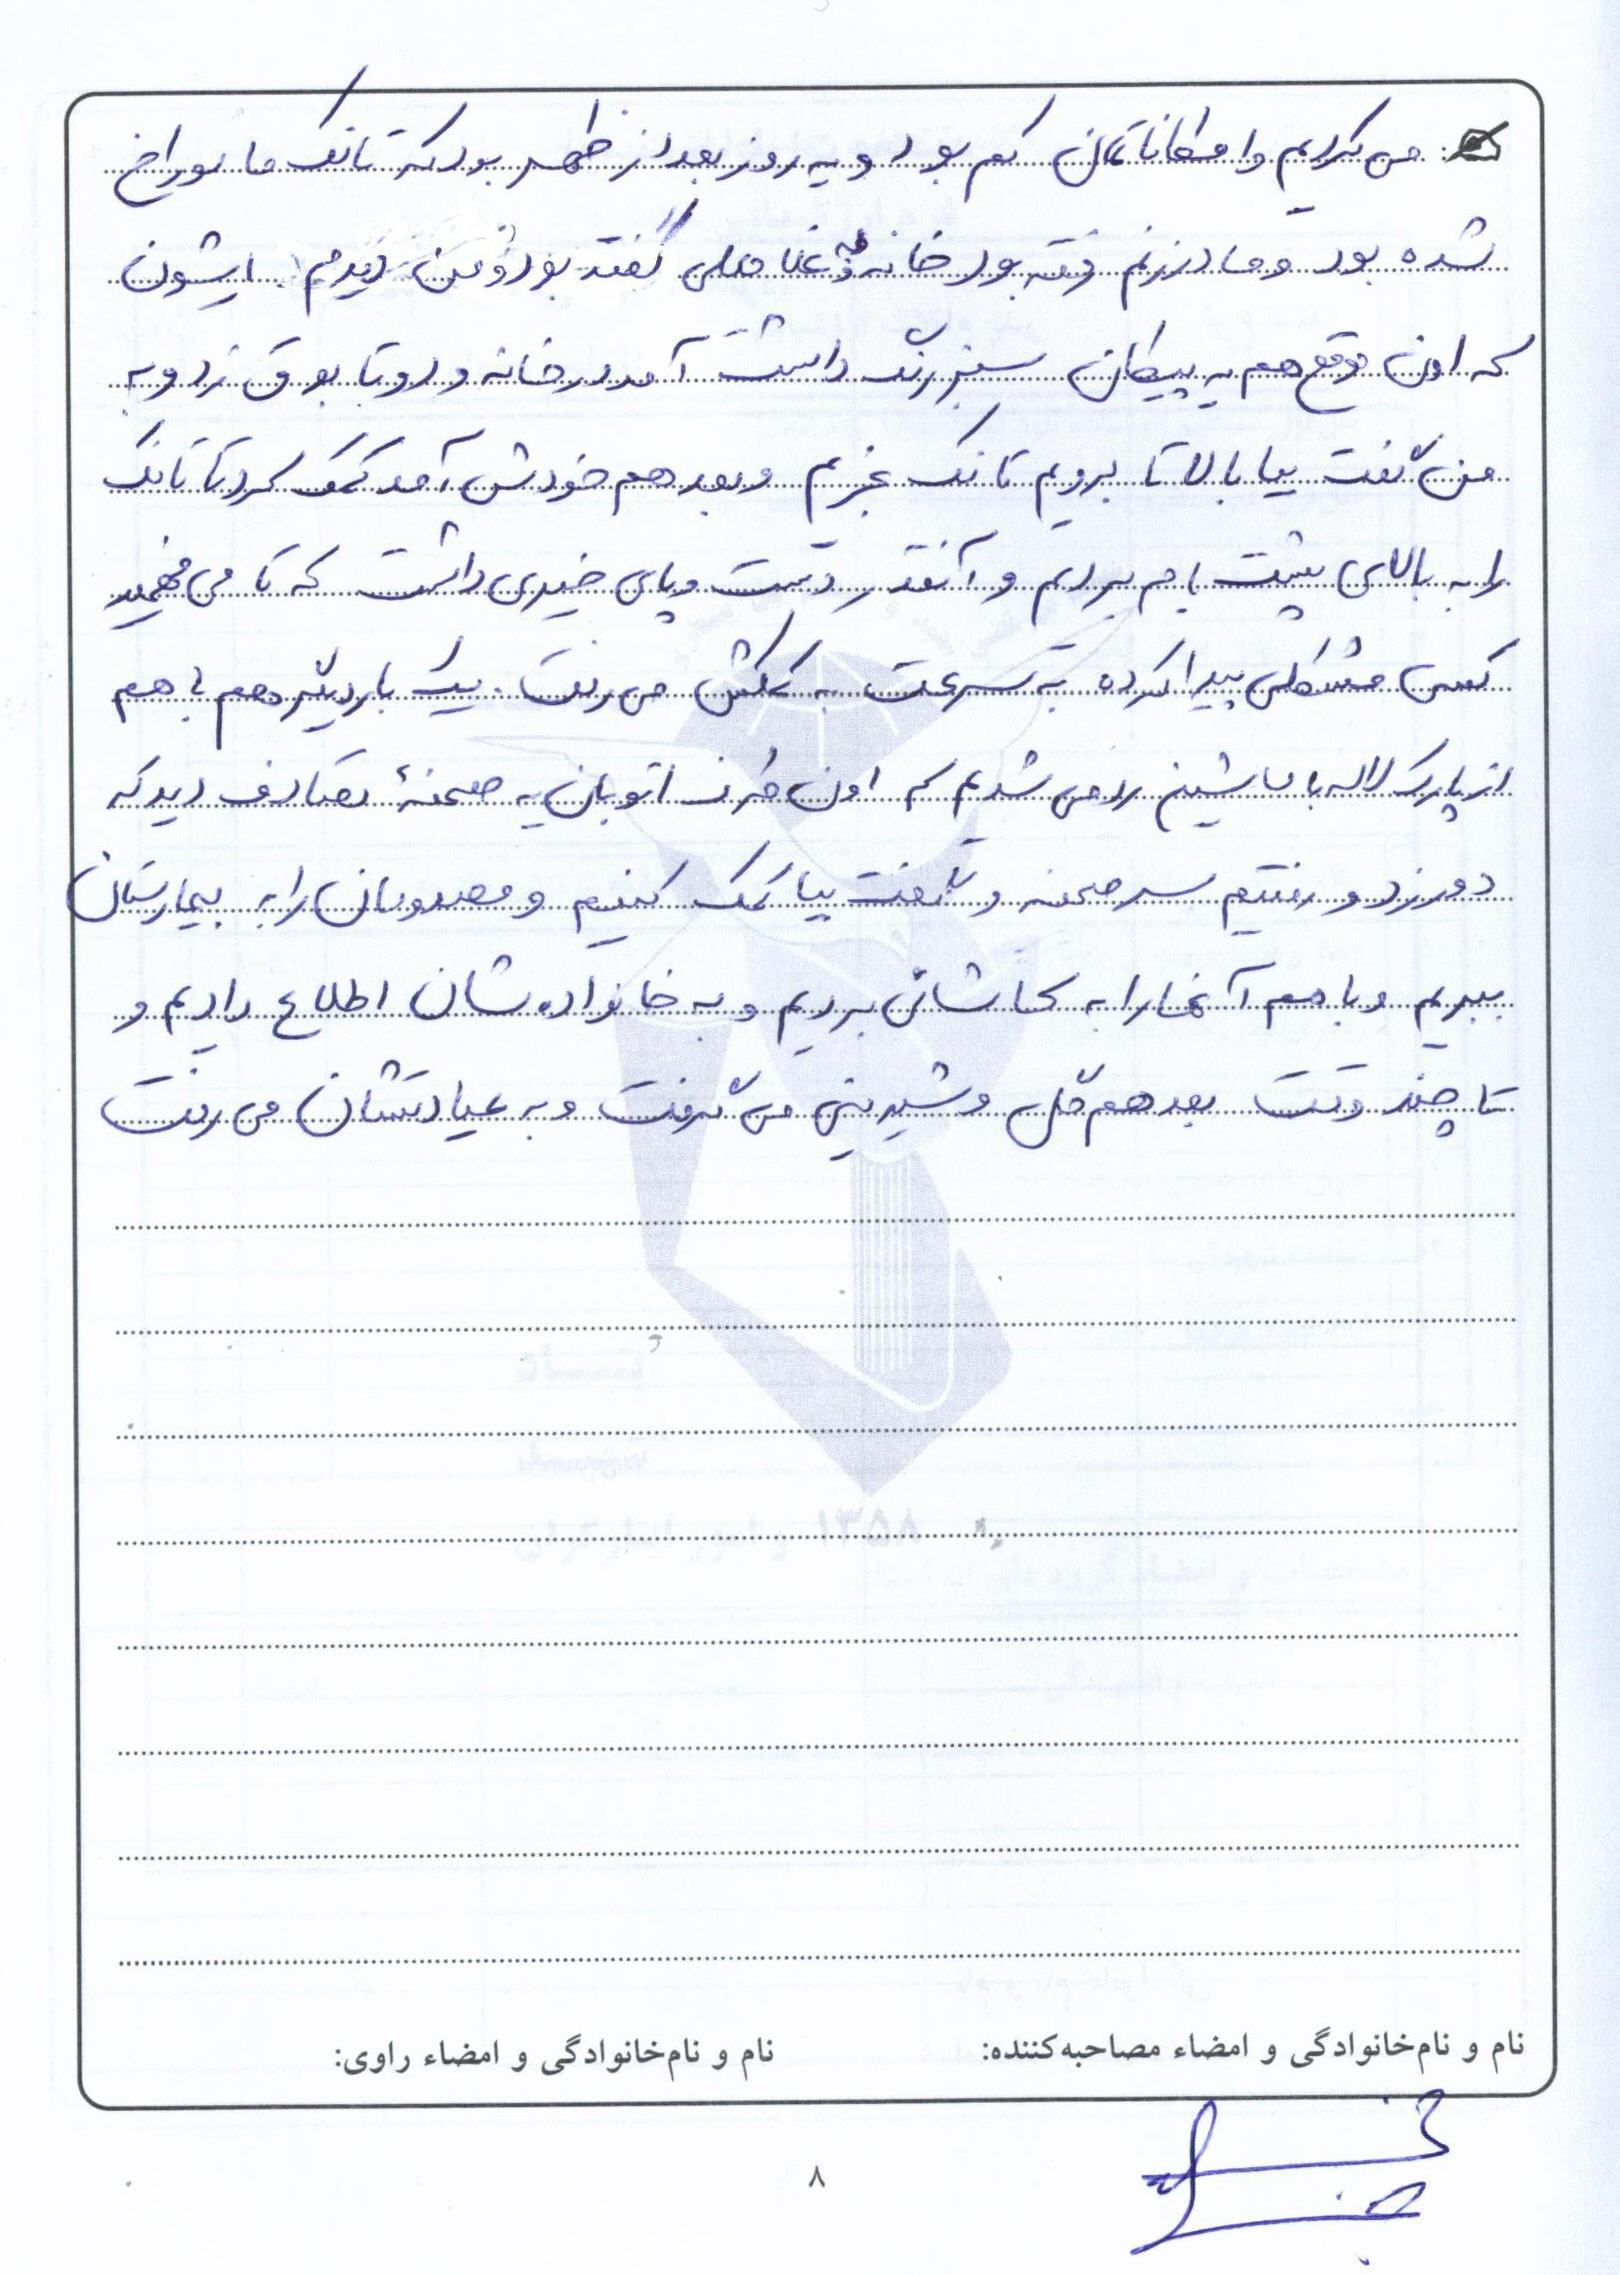 می کردیم و امکاناتمان کم بود و یه روز بعد از ظهر بود که تانک ما سوراخ
شده بود و مادرزنم رفته بود خانه غلامعلی گفته بود و من دیدم. ایشون
که اون موقع هم یه پیکان سبز رنگ داشت آمد در خانه و دو تا بوق زد و به
من گفت بیا بالا تا برویم تانک بخریم و بعد هم خودش آمد کمک کرد تا تانک
را به بالای پشت بام بردیم و آنقدر دست و پای خیری داشت که تا می فهمید
کسی مشکلی پیدا کرده به سرعت به کمکش می رفت. یک بار دیگر هم با هم
از پارک لاله با ماشین رد می شدیم که اون طرف اتوبان یه صحنهٔ تصادف دید که
دور زد و رفتیم سر صحنه و گفت بیا کمک کنیم و مصدومان را به بیمارستان
ببریم و با هم آنها را به کاشانی بردیم و به خانواده شان اطلاع دادیم و
تا چند وقت بعد هم گل و شیرینی می گرفت و به عیادتشان می رفت
۱۳۵۸
نام و نام‌خانوادگی و امضاء مصاحبه‌کننده: نام و نام‌خانوادگی و امضاء راوی:
۸